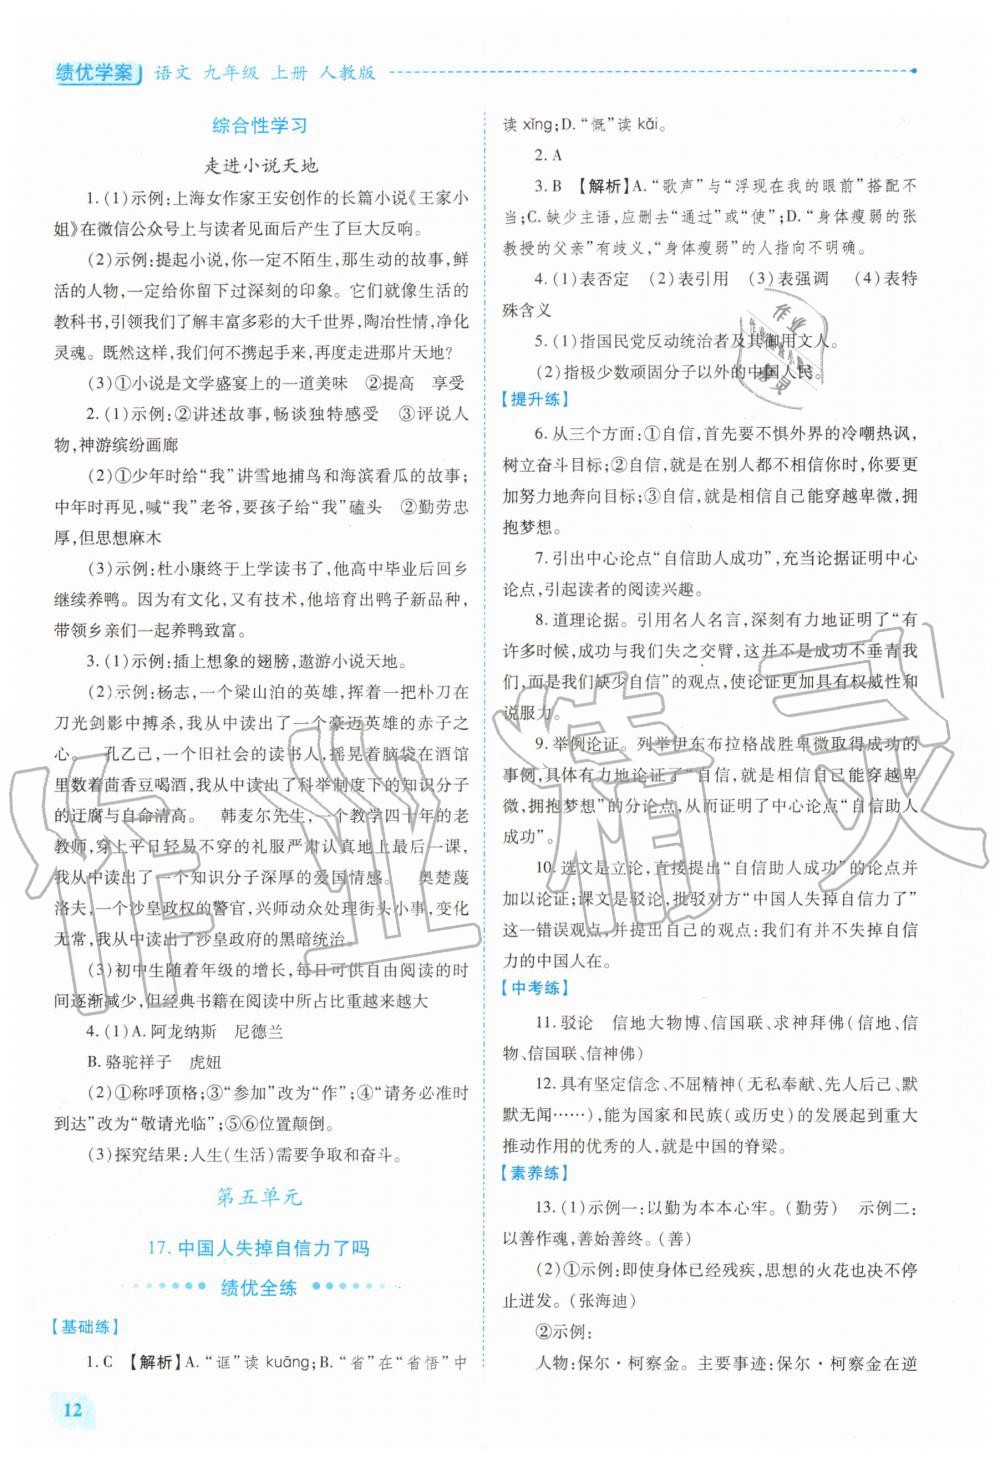 绩优学案 语文 九年级 上册 人教版
综合性学习
走进小说天地
1.(1)示例:上海女作家王安创作的长篇小说《王家小
姐》在微信公众号上与读者见面后产生了巨大反响。
(2)示例:提起小说,你一定不陌生,那生动的故事,鲜
活的人物,一定给你留下过深刻的印象。它们就像生活的
教科书,引领我们了解丰富多彩的大千世界,陶冶性情,净化
灵魂。既然这样,我们何不携起手来,再度走进那片天地?
(3)①小说是文学盛宴上的一道美味 ②提高 享受
2.(1)示例:②讲述故事,畅谈独特感受 ③评说人
物,神游缤纷画廊
(2)①少年时给“我”讲雪地捕鸟和海滨看瓜的故事;
中年时再见,喊“我”老爷,要孩子给“我”磕头 ②勤劳忠
厚,但思想麻木
(3)示例:杜小康终于上学读书了,他高中毕业后回乡
继续养鸭。因为有文化,又有技术,他培育出鸭子新品种,
带领乡亲们一起养鸭致富。
3.(1)示例:插上想象的翅膀,遨游小说天地。
(2)示例:杨志,一个梁山泊的英雄,挥着一把朴刀在
刀光剑影中搏杀,我从中读出了一个豪迈英雄的赤子之
心。 孔乙己,一个旧社会的读书人,摇晃着脑袋在酒馆
里数着茴香豆喝酒,我从中读出了科举制度下的知识分子
的迂腐与自命清高。 韩麦尔先生,一个教学四十年的老
教师,穿上平日轻易不穿的礼服严肃认真地上最后一课,
我从中读出了一个知识分子深厚的爱国情感。 奥楚蔑
洛夫,一个沙皇政权的警官,兴师动众处理街头小事,变化
无常,我从中读出了沙皇政府的黑暗统治。
(3)初中生随着年级的增长,每周可供自由阅读的时
间逐渐减少,但经典书籍在阅读中所占比重越来越大
4.(1)A.阿龙纳斯 尼德兰
B.骆驼祥子 虎妞
(2)①称呼顶格;③“参加”改为“作”;④“请务必准时
到达”改为“敬请光临”;⑤⑥位置颠倒。
(3)探究结果:人生(生活)需要争取和奋斗。
第五单元
17.中国人失掉自信力了吗
绩优全练
【基础练】
1.C 【解析】A.“诓”读 kuāng;B.“省”在“省悟”中
读 xǐng;D.“慨”读 kǎi。
2.A
3.B 【解析】A.“歌声”与“浮现在我的眼前”搭配不
当;C.缺少主语,应删去“通过”或“使”;D.“身体瘦弱的张
教授的父亲”有歧义,“身体瘦弱”的人指向不明确。
4.(1)表否定 (2)表引用 (3)表强调 (4)表特
殊含义
5.(1)指国民党反动统治者及其御用文人。
(2)指极少数顽固分子以外的中国人民。
【提升练】
6.从三个方面:①自信,首先要不惧外界的冷嘲热讽,
树立奋斗目标;②自信,就是在别人都不相信你时,你要更
加努力地奔向目标;③自信,就是相信自己能穿越卑微,拥
抱梦想。
7.引出中心论点“自信助人成功”,充当论据证明中心
论点,引起读者的阅读兴趣。
8.道理论据。引用名人名言,深刻有力地证明了“有
许多时候,成功与我们失之交臂,这并不是成功不垂青我
们,而是我们缺少自信”的观点,使论证更具有权威性和
说服力。
9.举例论证。列举伊东布拉格战胜卑微取得成功的
事例,具体有力地论证了“自信,就是相信自己能穿越卑
微,拥抱梦想”的分论点,从而证明了中心论点“自信助人
成功”。
10.选文是立论,直接提出“自信助人成功”的论点并
加以论证;课文是驳论,批驳对方“中国人失掉自信力了”
这一错误观点,并提出自己的观点:我们有并不失掉自信
力的中国人在。
【中考练】
11.驳论 信地大物博、信国联、求神拜佛(信地、信
物、信国联、信神佛)
12.具有坚定信念、不屈精神(无私奉献、先人后己、默
默无闻……),能为国家和民族(或历史)的发展起到重大
推动作用的优秀的人,就是中国的脊梁。
【素养练】
13.(1)示例一:以勤为本本心牢。(勤劳) 示例二:
以善作魂,善始善终。(善)
(2)①示例:即使身体已经残疾,思想的火花也决不停
止迸发。(张海迪)
②示例:
人物:保尔·柯察金。主要事迹:保尔·柯察金在逆
12
作业精灵